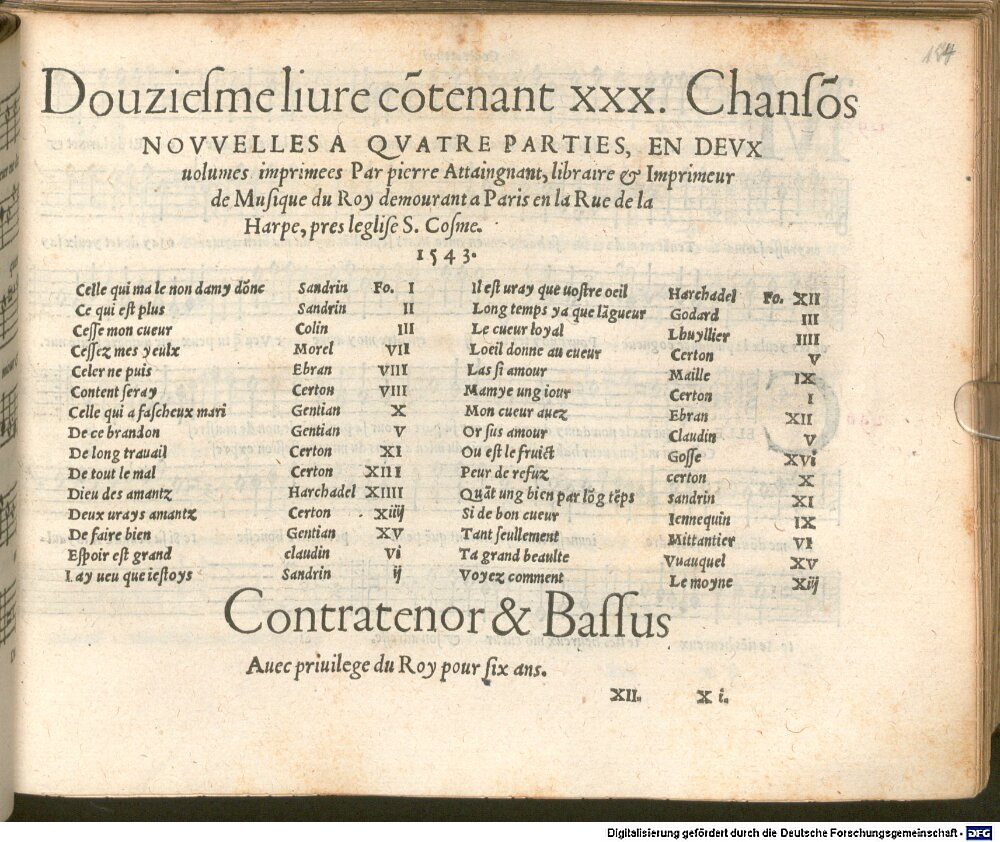 184
Douzieſme liure cõtenant xxx. Chanſõs
NOVVELLES A QVATRE PARTIES, EN DEVX
uolumes imprimees Par pierre Attaingnant, libraire & Imprimeur
de Muſique du Roy demourant a Paris en la Rue de la
Harpe, pres legliſe S. Coſme.
1543.
Celle qui ma le non damy dõne Sandrin Fo. I
Ce qui eſt plus Sandrin II
Ceſſe mon cueur Colin III
Ceſſez mes yeulx Morel VII
Celer ne puis Ebran VIII
Content ſeray Certon VIII
Celle qui a faſcheux mari Gentian X
De ce brandon Gentian V
De long trauail Certon XI
De tout le mal Certon XIII
Dieu des amantz Harchadel XIIII
Deux urays amantz Certon XIIIj
De faire bien Gentian XV
Eſpoir eſt grand claudin VI
I ay ueu que ieſtoys Sandrin ij
Il eſt uray que uoſtre oeil Harchadel Fo. XII
Long temps ya que lãgueur Godard III
Le cueur loyal Lhuyllier IIII
Loeil donne au cueur Certon V
Las ſi amour Maille IX
Mamye ung iour Certon I
Mon cueur auez Ebran XII
Or ſus amour Claudin V
Ou eſt le fruict Goſſe XVI
Peur de refuz certon X
Quãt ung bien par lõg tẽps sandrin XI
Si de bon cueur Iennequin IX
Tant ſeullement Mittantier VI
Ta grand beaulte Vuauquel XV
Voyez comment Le moyne XIIj
Contratenor & Baſſus
Auec priuilege du Roy pour ſix ans.
XII. X i.
Digitalisierung gefördert durch die Deutsche Forschungsgemeinschaft - DFG